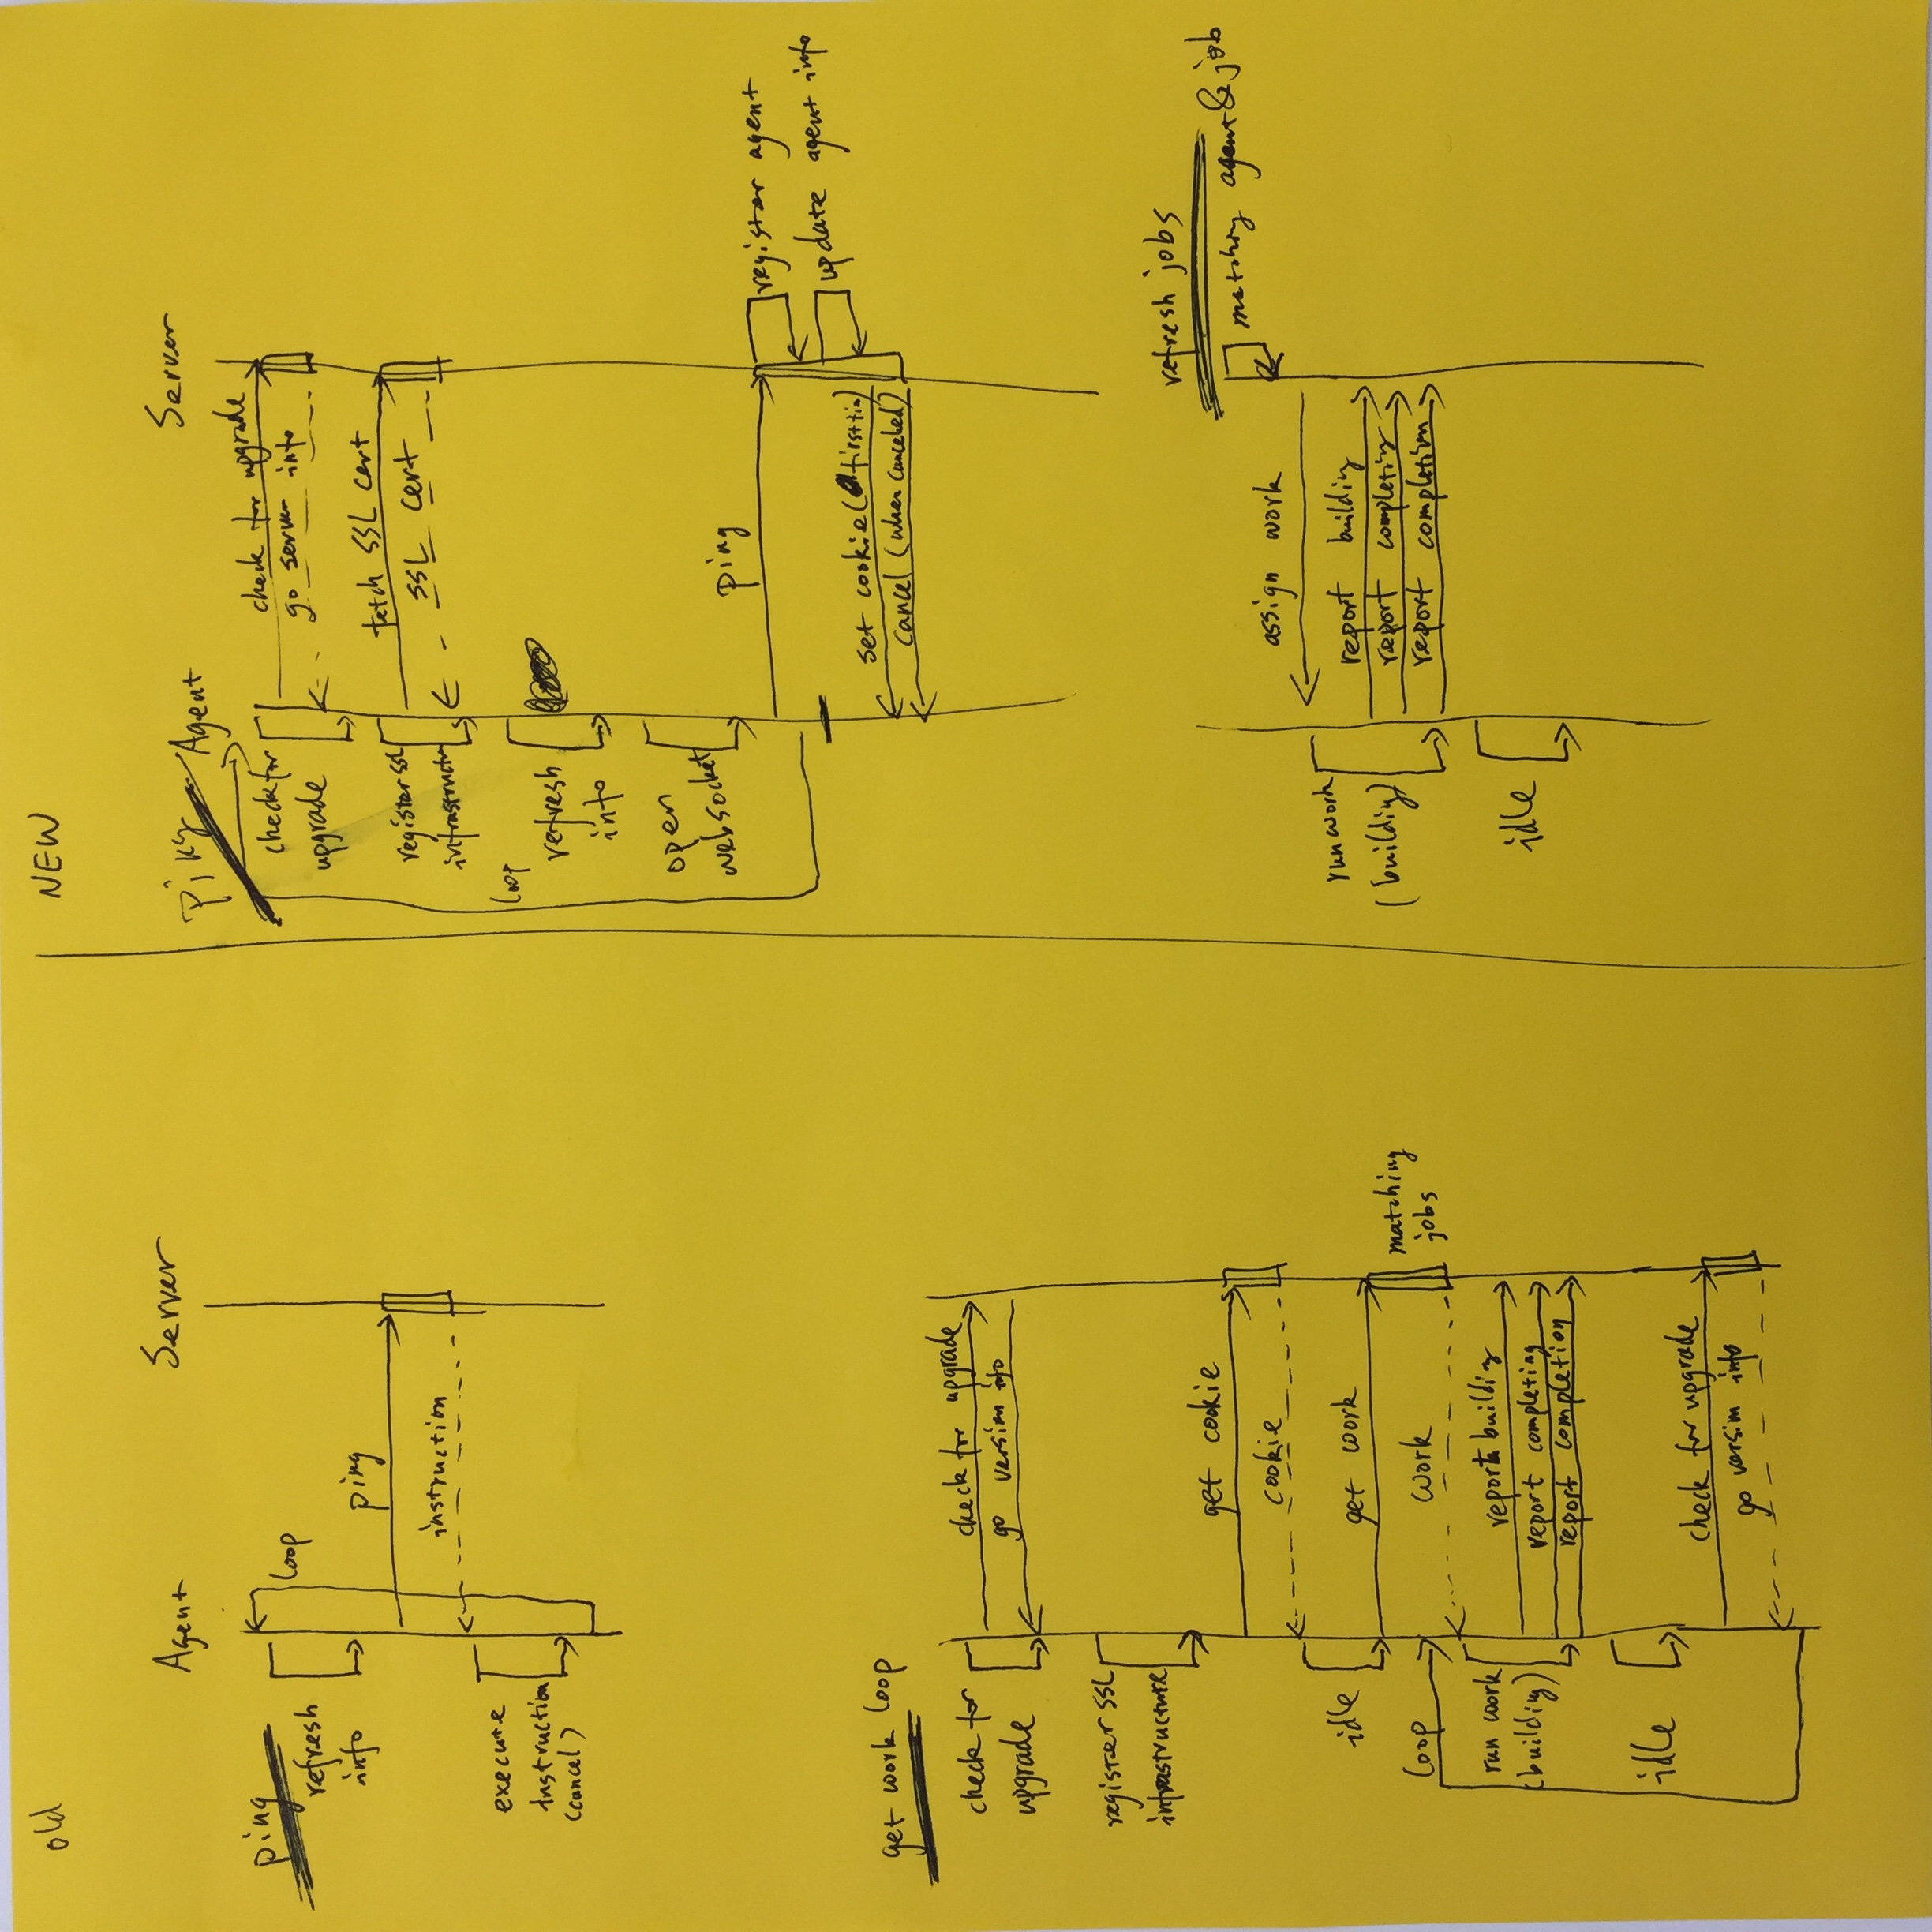 old
Agent
Server
ping
loop
refresh
info
ping
instruction
execute
instruction
(cancel)
get work loop
check for
upgrade
check for upgrade
go version info
register SSL
infrastructure
get cookie
cookie
idle
get work
matching
jobs
loop
work
run work
(building)
report building
report completing
report completion
idle
check for upgrade
go version info
NEW
ping
Agent
Server
check for
upgrade
check for upgrade
go server info
register ssl
infrastructure
fetch SSL cert
SSL cert
loop
refresh
info
open
websocket
ping
register agent
update agent info
set cookie (first tim)
cancel (when canceled)
refresh jobs
matching agent & job
assign work
run work
(building)
report building
report completing
report completion
idle